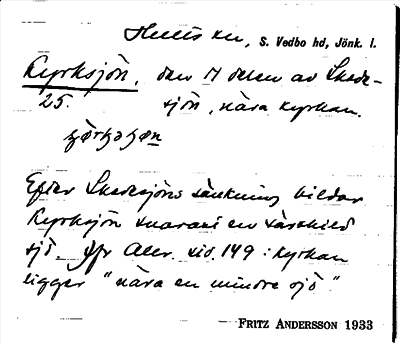 Hults kn, S. Vedbo hd, Jönk. l.
Kyrksjön, den N delen av Skede-
25. sjön, nära kyrkan.
Efter Skedesjöns sänkning bildar
Kyrksjön snarast en särskild
sjö. Jfr Allv. sid. 149: kyrkan
ligger "nära en mindre sjö"
FRITZ ANDERSSON 1933